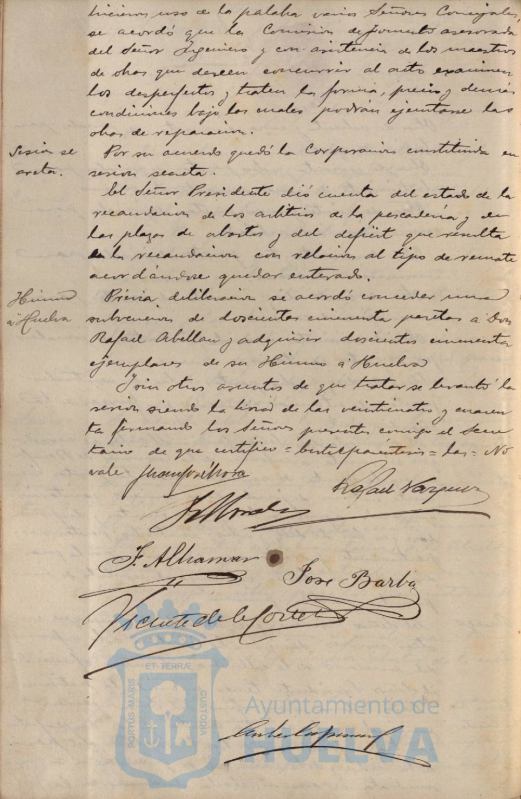 hicieron uso de la palabra varios Señores Concejales,
se acordó que la Comisión de fomento asesorada
del Señor Ingeniero y con asistencia de los maestros
de obras que deseen concurrir al acto examinen
los desperfectos y traten la forma, precio y demás
condiciones bajo las cuales podrán ejecutarse las
obras de reparación.
Sesión se
creta.
Por su acuerdo quedó la Corporación constituida en
sesión secreta.
El Señor Presidente dió cuenta del estado de la
recaudación de los arbitrios de la pescadería y en
las plazas de abastos y del deficit que resulta
en la recaudación con relación al tipo de remate
acordándose quedar enterado.
Himno
á Huelva
Prévia deliberación se acordó conceder una
subvención de doscientas cincuenta pesetas á Don
Rafael Abellan y adquirir doscientos cincuenta
ejemplares de su Himno á Huelva
Y sin otros asuntos de que tratar se levantó la
sesión siendo la hora de las veintiuatro y cuaren
ta firmando los Señores presentes conmigo el Secre
tario de que certifico = = las = No
vale
Rafael Vazquez
F. Alhamar
José Barba
Vicente de la Corte
PORTUS MARIS ET TERRÆ CUSTODIA
Ayuntamiento de
HUELVA